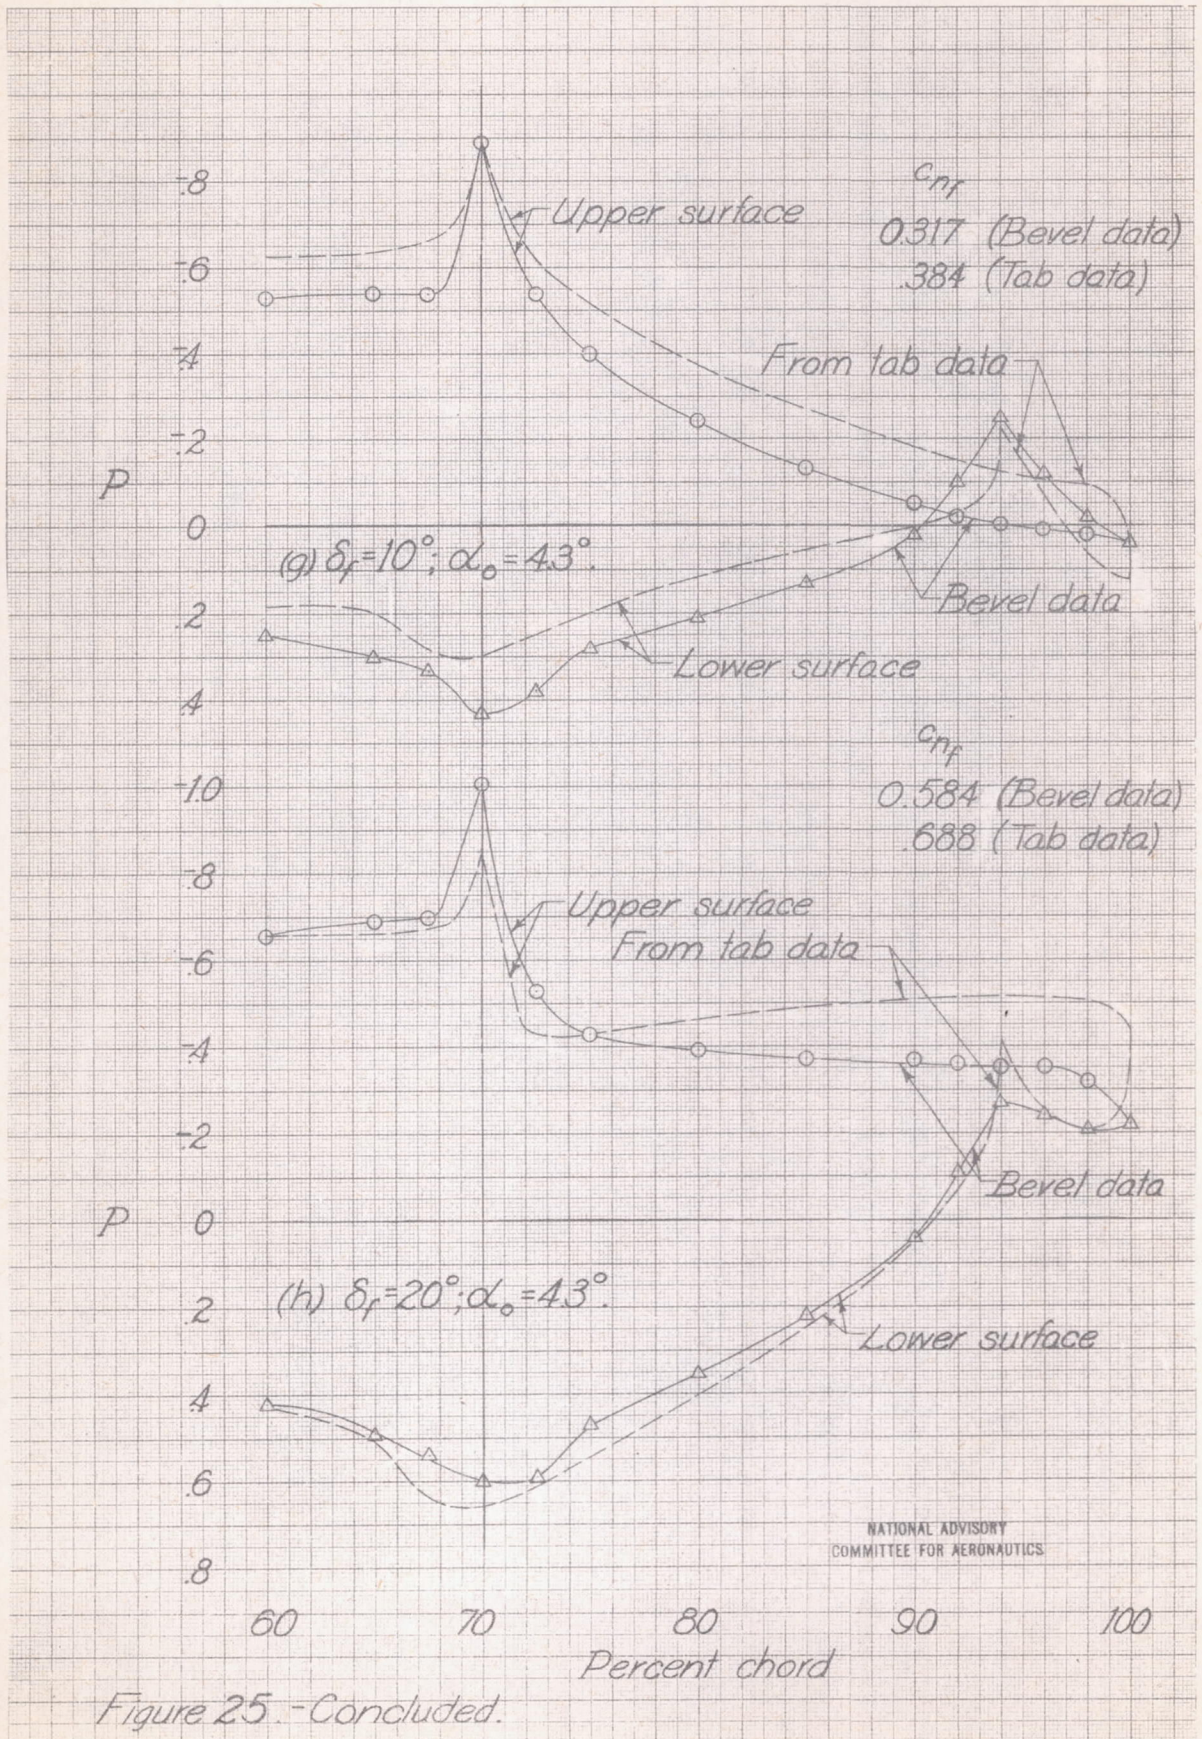 -.8
-.6
-.4
-.2
P
0
.2
.4
c_nf
0.317 (Bevel data)
.384 (Tab data)
Upper surface
From tab data
(g) δ_f=10°; α_o=4.3°.
Bevel data
Lower surface
c_nf
0.584 (Bevel data)
.688 (Tab data)
-1.0
-.8
-.6
-.4
-.2
P
0
.2
.4
.6
.8
Upper surface
From tab data
Bevel data
(h) δ_f=20°; α_o=4.3°.
Lower surface
NATIONAL ADVISORY
COMMITTEE FOR AERONAUTICS
60 70 80 90 100
Percent chord
Figure 25.-Concluded.